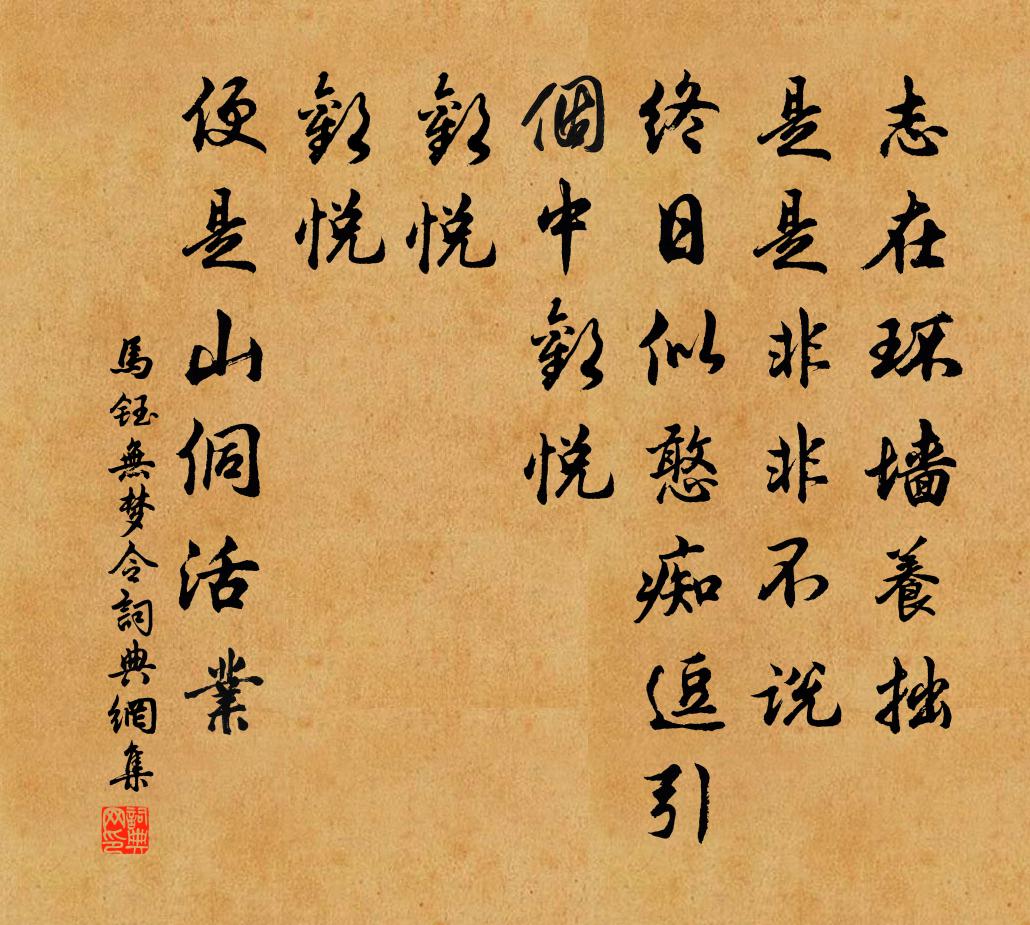 志在环墙養拙
是是非非不说
终日似憨痴逗引
個中歡悦
歡悦
歡悦
便是山侗活業
馬鈺無梦令詞典網集
詞典网印